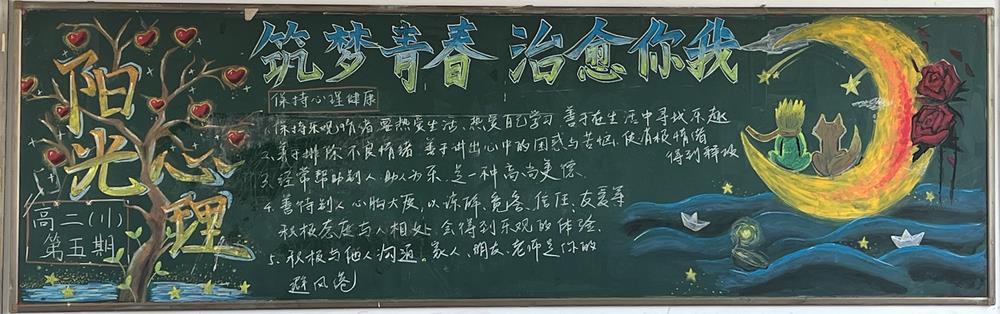 阳光心理
高二(11)
第五期
筑梦青春 治愈你我
保持心理健康
1.保持乐观情绪 要热爱生活、热爱自己学习 善于在生活中寻找乐趣
2.善于排除不良情绪 善于讲出心中的困惑与苦恼、使消极情绪
得到释放
3.经常帮助别人 助人为乐 是一种高尚美德
4.善待别人 心胸大度,以谅解、宽容、信任、友爱等
积极态度与人相处 会得到乐观的体验.
5.积极与他人沟通。家人、朋友、老师是你的
避风港